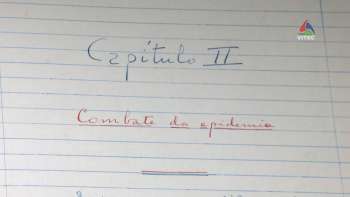 VITEC
Capítulo II
Combate da epidemia